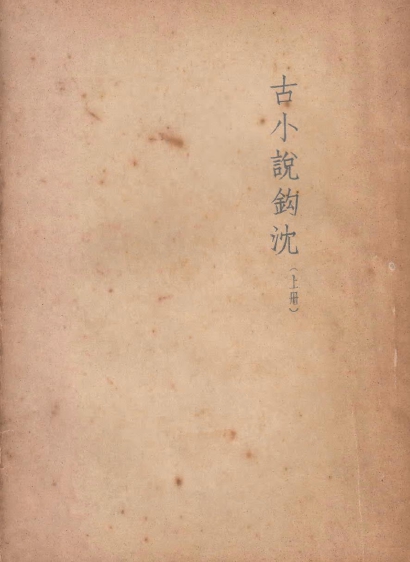 古小說鈎沈(上册)